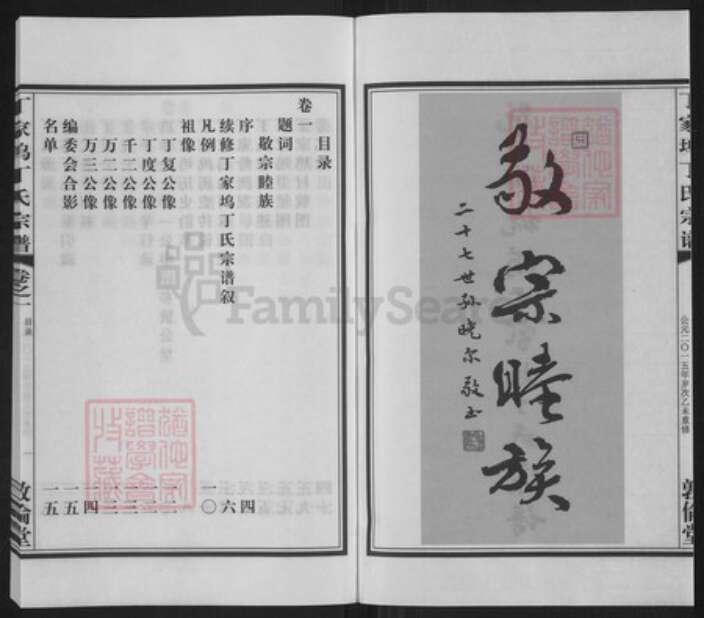 敬宗睦族
二十七世孙晓尔敬书
丁家坞丁氏宗谱
公元二〇一五年岁次乙未重修
敦伦堂
目录
卷一
题词
敬宗睦族
序 四
续修丁家坞丁氏宗谱叙 六
凡例 一〇
祖像
丁复公像 一二
丁度公像
千二公像
万二公像
万三公像 一四
编委会合影 一五
名单 一五
丁家坞丁氏宗谱
卷之一
目录
一
敦伦堂
FamilySearch